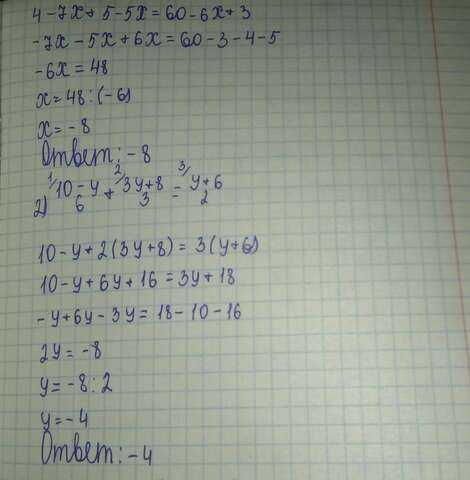 4-7x+5-5x=60-6x+3
-7x-5x+6x=60-3-4-5
-6x=48
x=48:(-6)
x=-8
Ответ: -8
2) ¹⁄10-y/6 + ²⁄3y+8/3 = ³⁄y+6/2
10-y+2(3y+8)=3(y+6)
10-y+6y+16=3y+18
-y+6y-3y=18-10-16
2y=-8
y=-8:2
y=-4
Ответ: -4